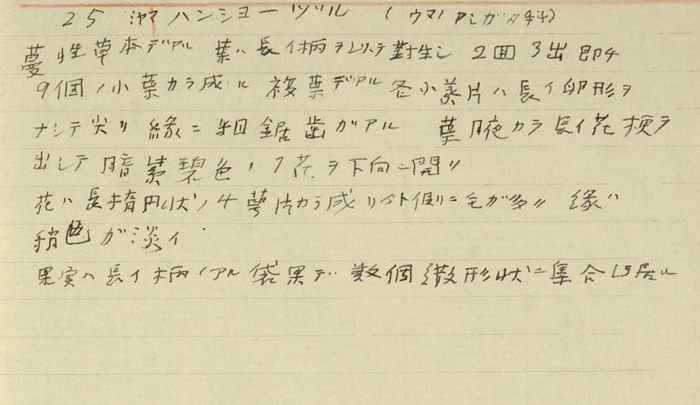 25 ミヤマハンショーヅル (ウマノアシガタ科)
蔓性草本デアル 葉ハ長イ柄ヲ以テ對生シ 2回3出即チ
9個ノ小葉カラ成ル 複葉デアル 各小葉片ハ長イ卵形ヲ
ナシテ尖リ 緣ニ粗鋸歯ガアル 葉腋カラ長イ花梗ヲ
出シテ暗紫碧色ノ1花ヲ下向ニ開ク
花ハ長楕円状ノ4萼片カラ成リ外側ニ毛ガ多ク 緣ハ
稍色ガ淡イ
果実ハ長イ柄ノアル袋果デ 数個繖形状ニ集合シ居ル